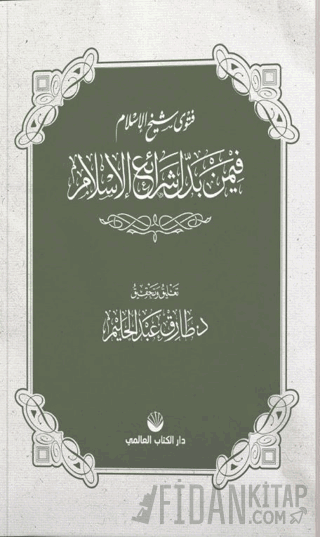 فتوى شيخ الإسلام
فيمن بدل شرائع الإسلام
تعليق وتحقيق
د. طارق عبد الحليم
دار الكتاب العالمي
FİDANKİTAP
.COM